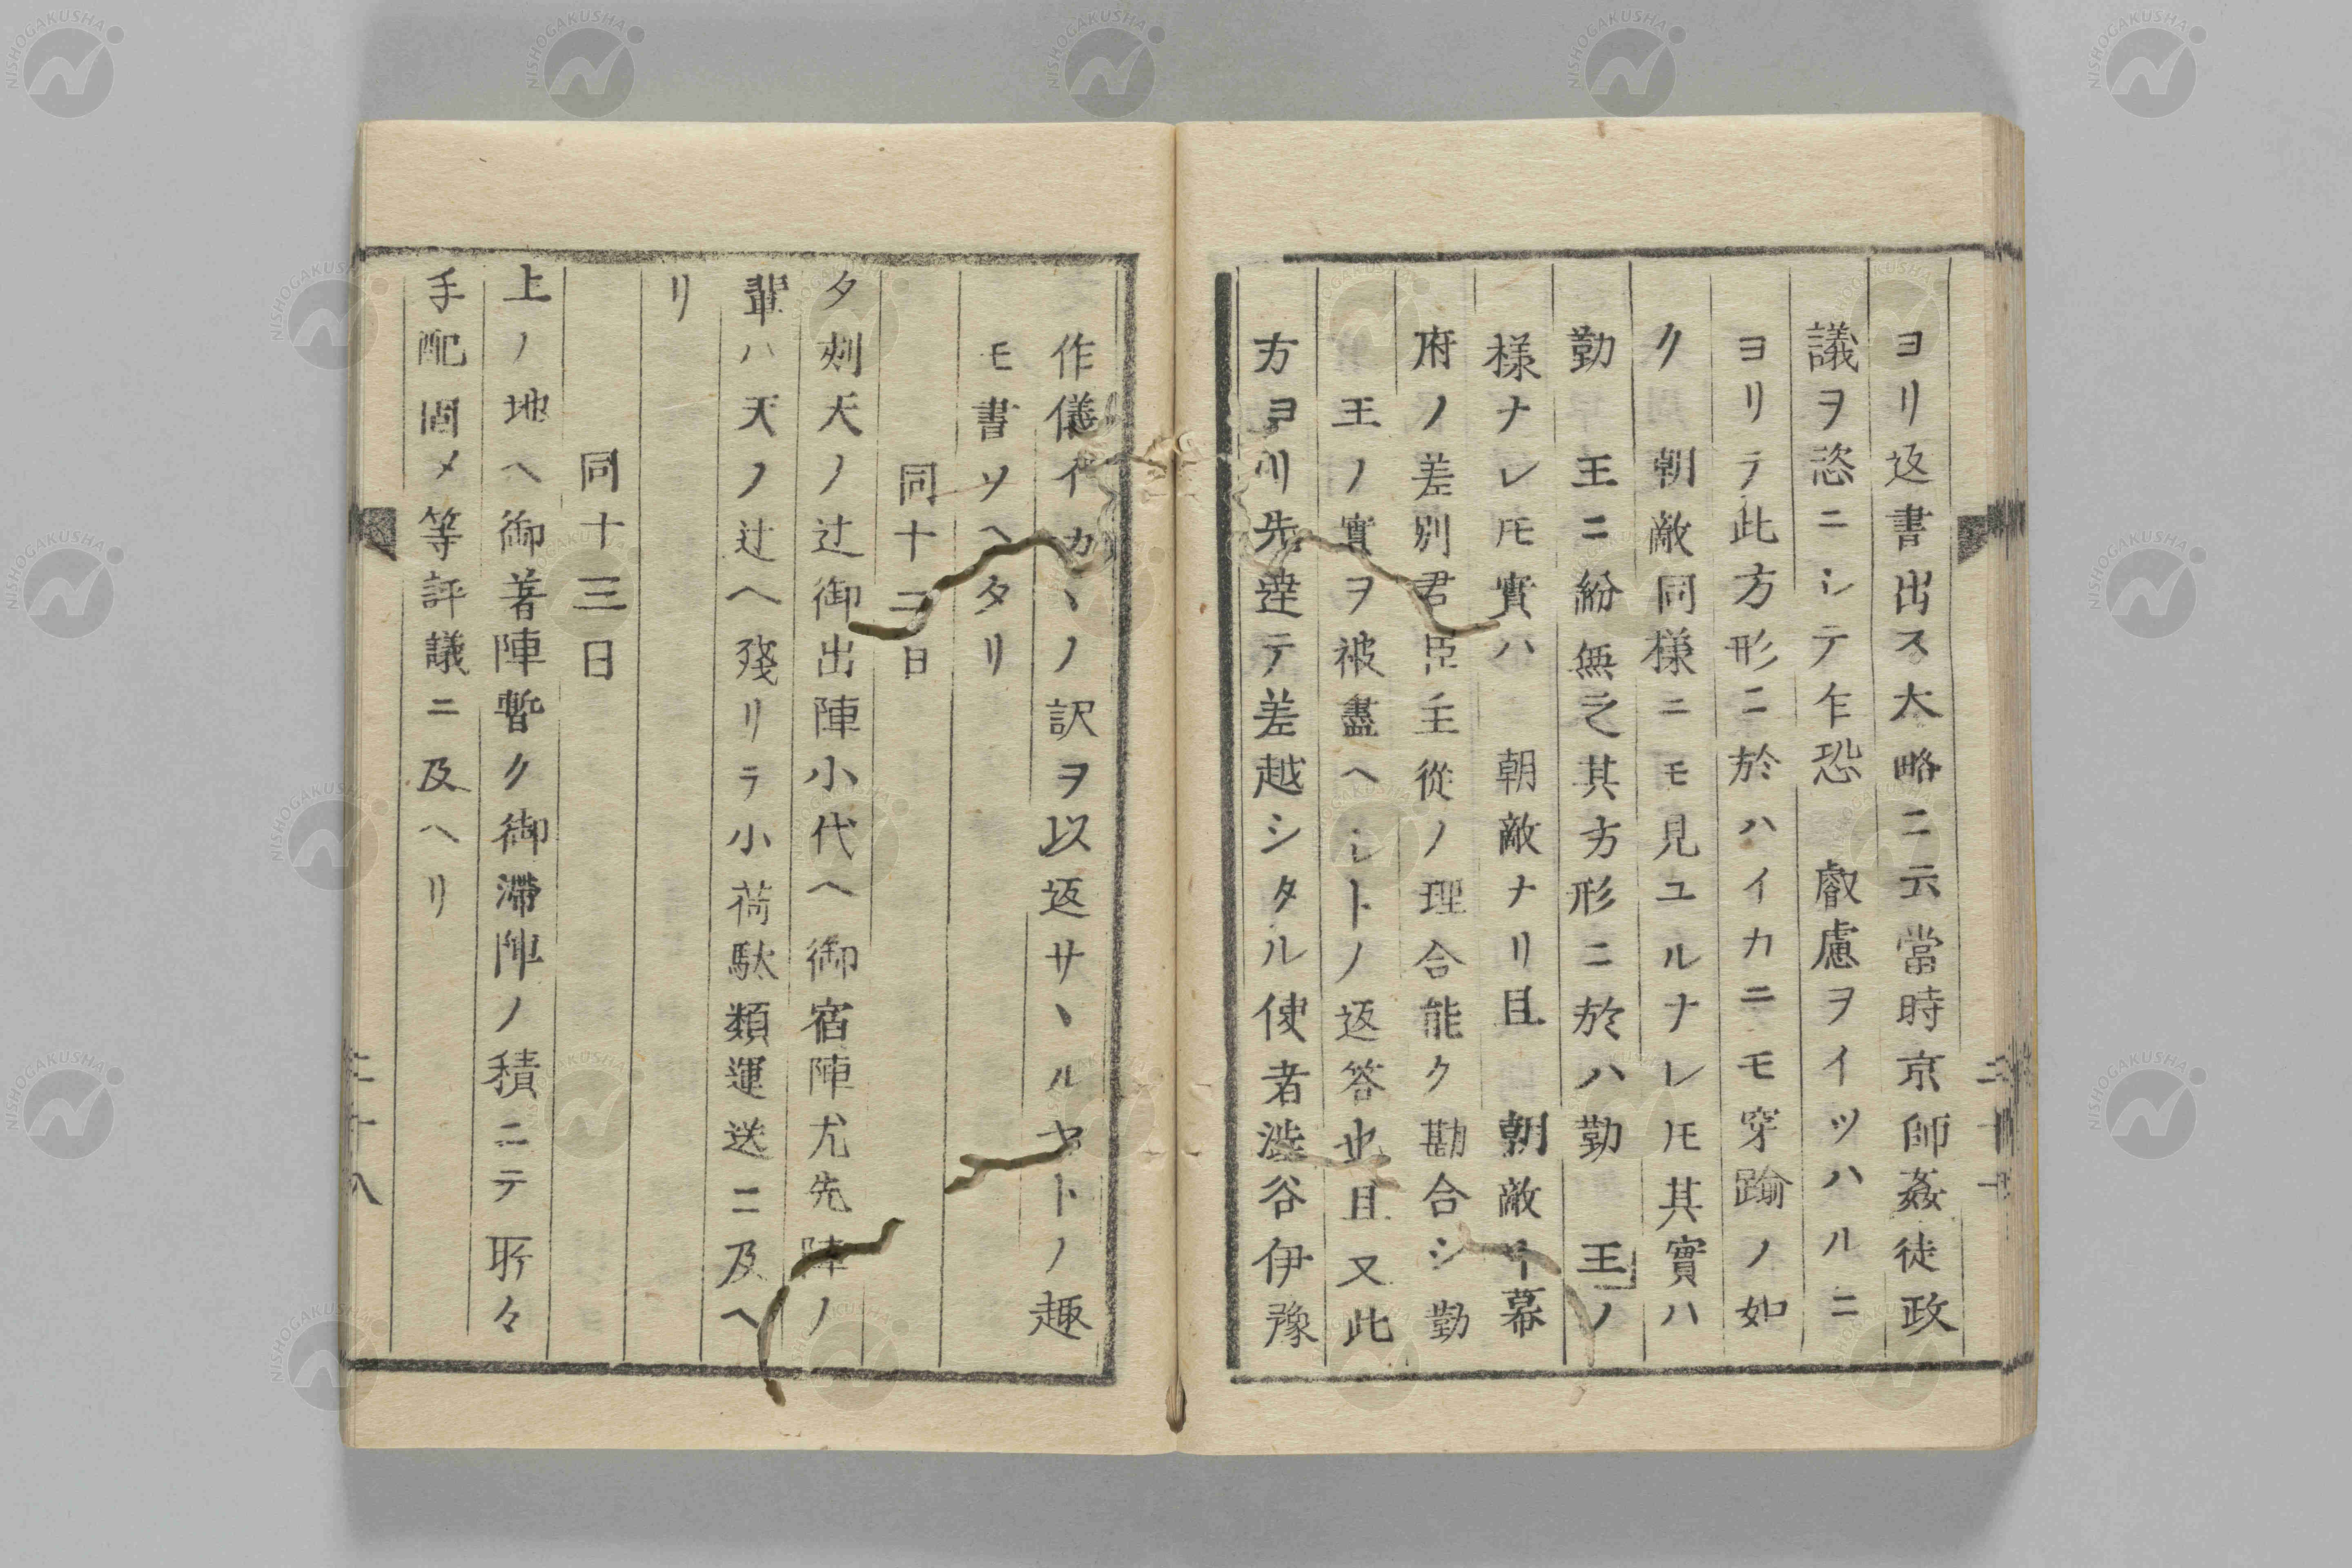 ヨリ返書出ス大略ニ云當時京師姦徒政
議ヲ恣ニシテ乍恐　叡慮ヲイツハルニ
ヨリテ此方形ニ於ハイカニモ穿踰ノ如
ク　朝敵同様ニモ見ユルナレ𪜈其實ハ
勤　王ニ紛無之其方形ニ於ハ勤　王ノ
様ナレ𪜈實ハ　朝敵ナリ且　朝敵ト幕
府ノ差別君臣主從ノ理合能ク勘合シ勤
王ノ實ヲ被盡ヘシトノ返答也且又此
方ヨリ先達テ差越シタル使者澁谷伊豫
作儀イカヽノ訳ヲ以返サヽルヤトノ趣
モ書ソヘタリ
同十二日
夕刻天ノ辻御出陣小代ヘ御宿陣尤先陣ノ
輩ハ天ノ辻ヘ殘リテ小荷駄類運送ニ及ヘ
リ
同十三日
上ノ地ヘ御著陣暫ク御滞陣ノ積ニテ所々
手配固メ等評議ニ及ヘリ
二十八
NISHOGAKUSHA